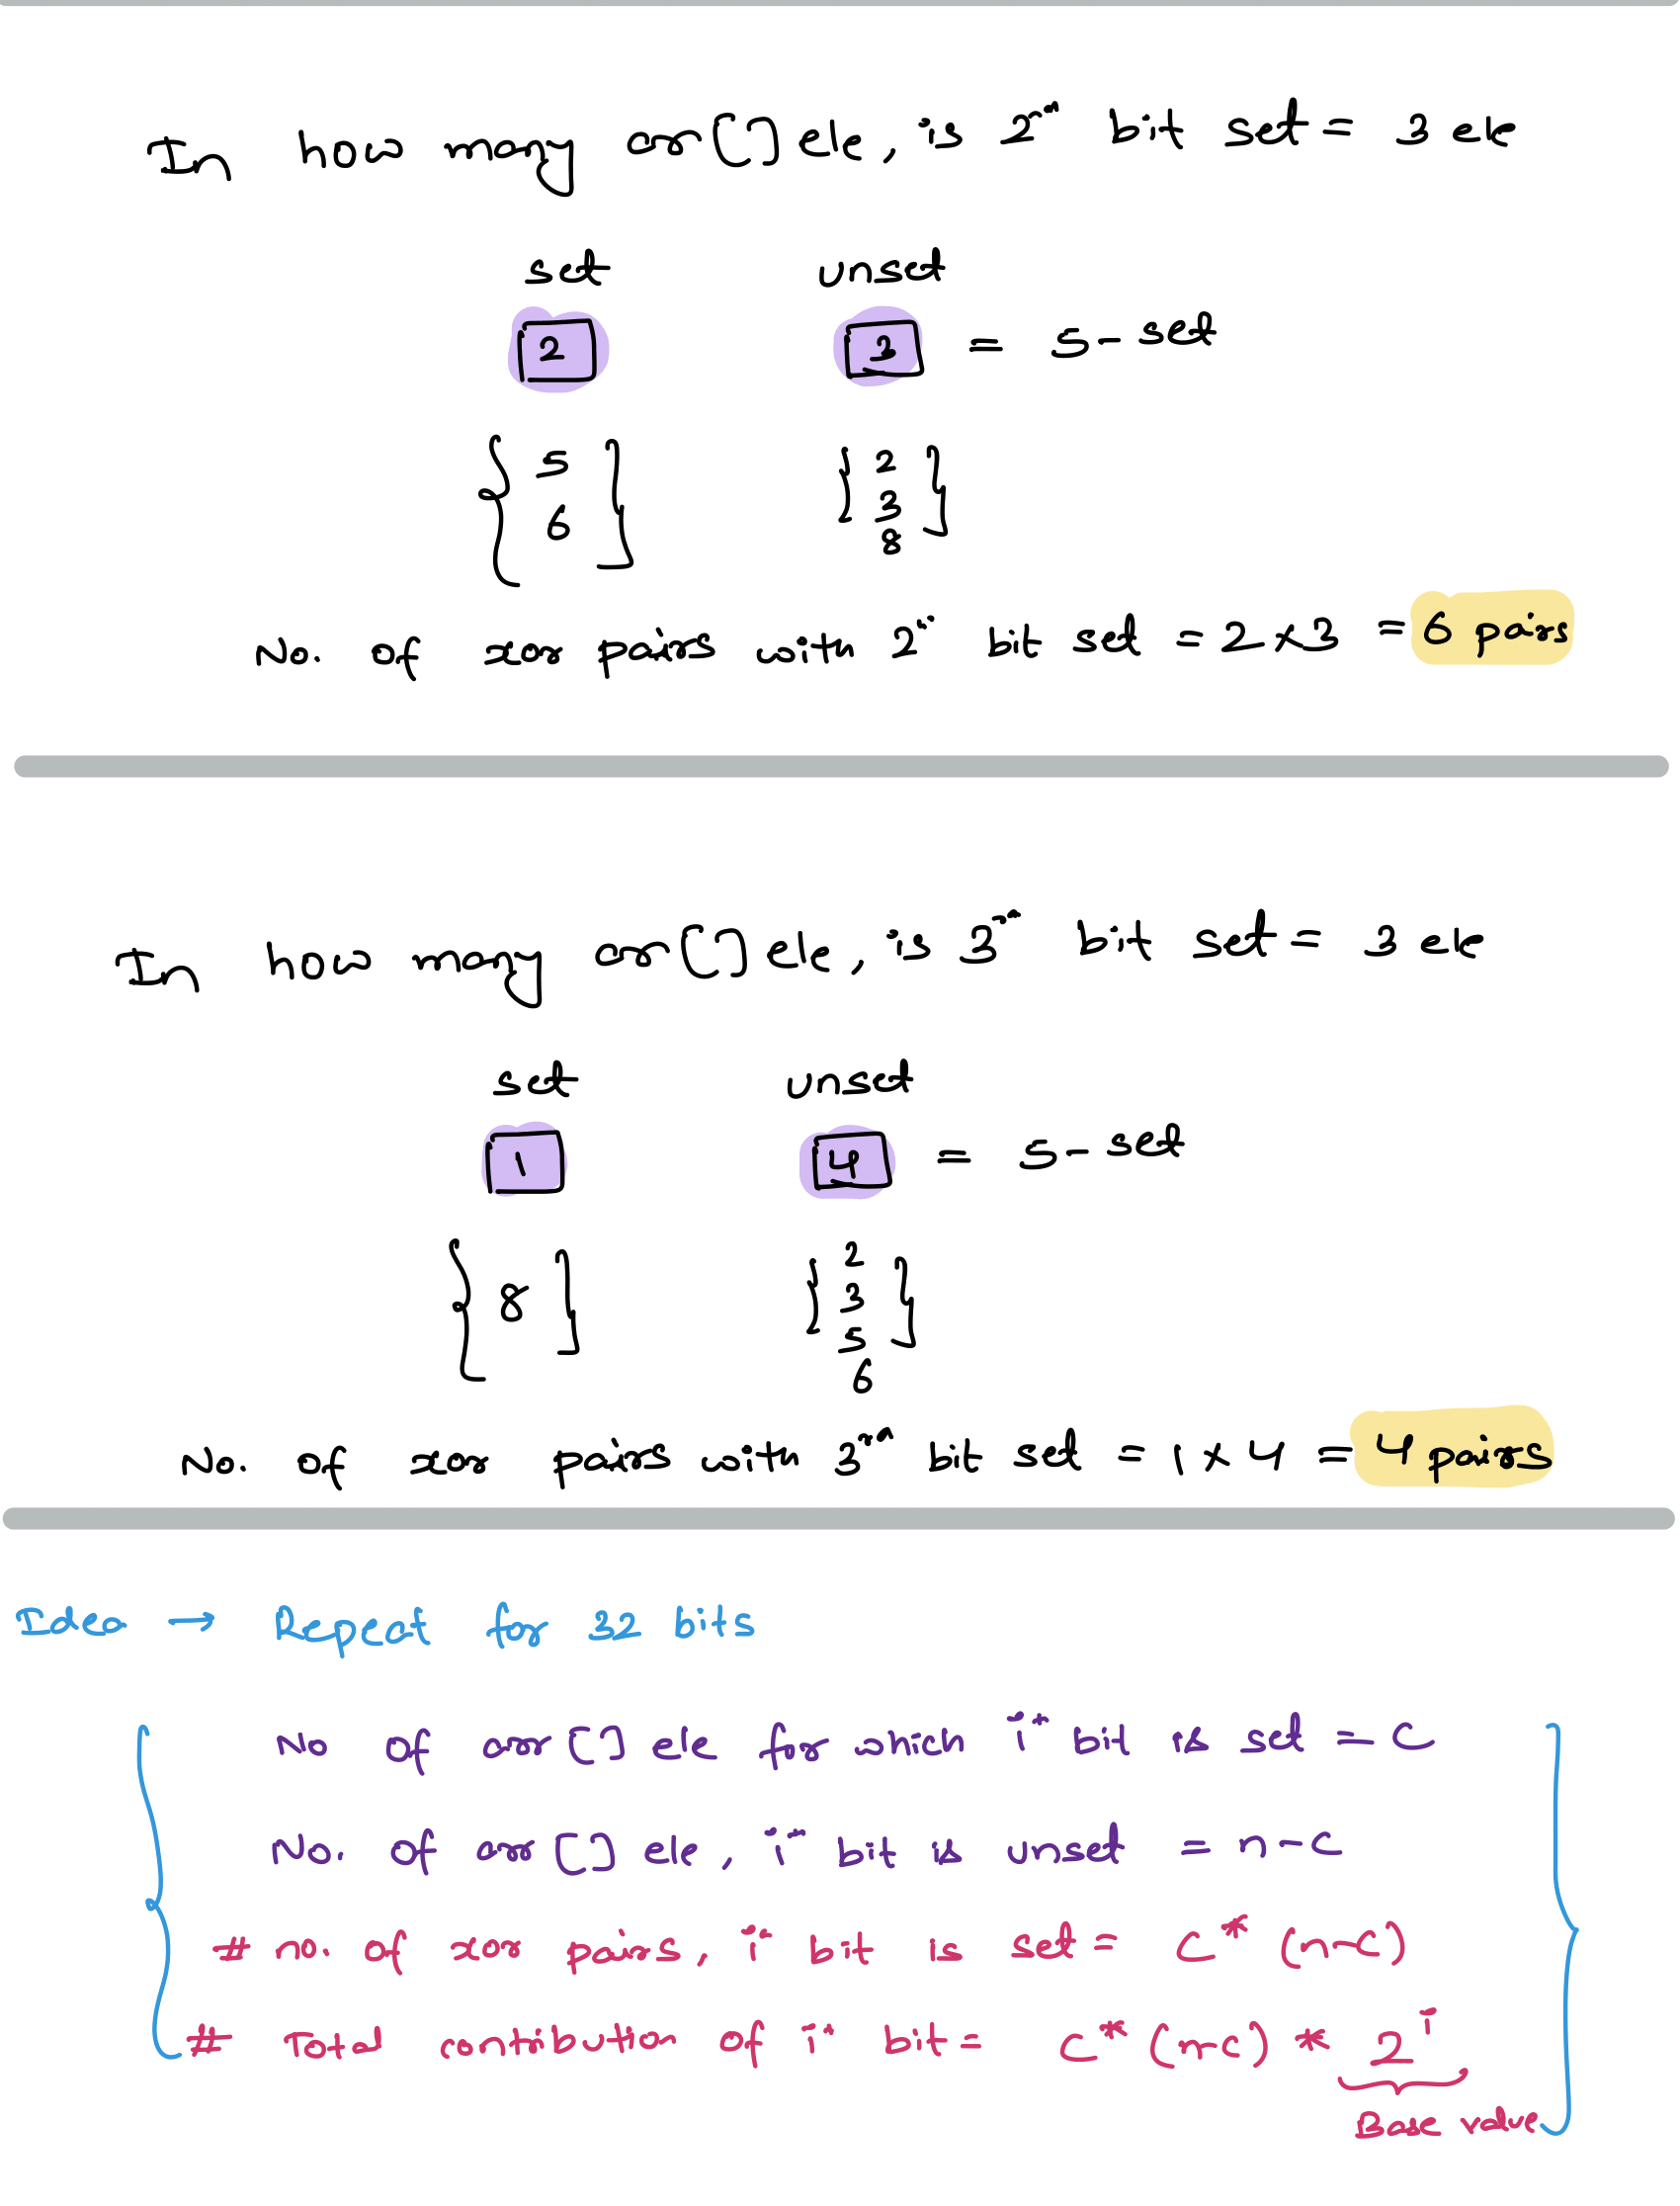 In how many arr[] ele, is 2nd bit set = 3 ele
set unset
2 3 = 5 - set
{ 5 ] { 2 ]
6 3
8
No. of xor pairs with 2nd bit set = 2 x 3 = 6 pairs
In how many arr[] ele, is 3rd bit set = 3 ele
set unset
1 4 = 5 - set
{ 8 ] { 2 ]
3
5
6
No. of xor pairs with 3rd bit set = 1 x 4 = 4 pairs
Idea → Repeat for 32 bits
No of arr[] ele for which ith bit is set = C
No. of arr[] ele, ith bit is unset = n-c
# no. of xor pairs, ith bit is set = C * (n-c)
# Total contribution of ith bit = C * (n-c) * 2^i
Base value